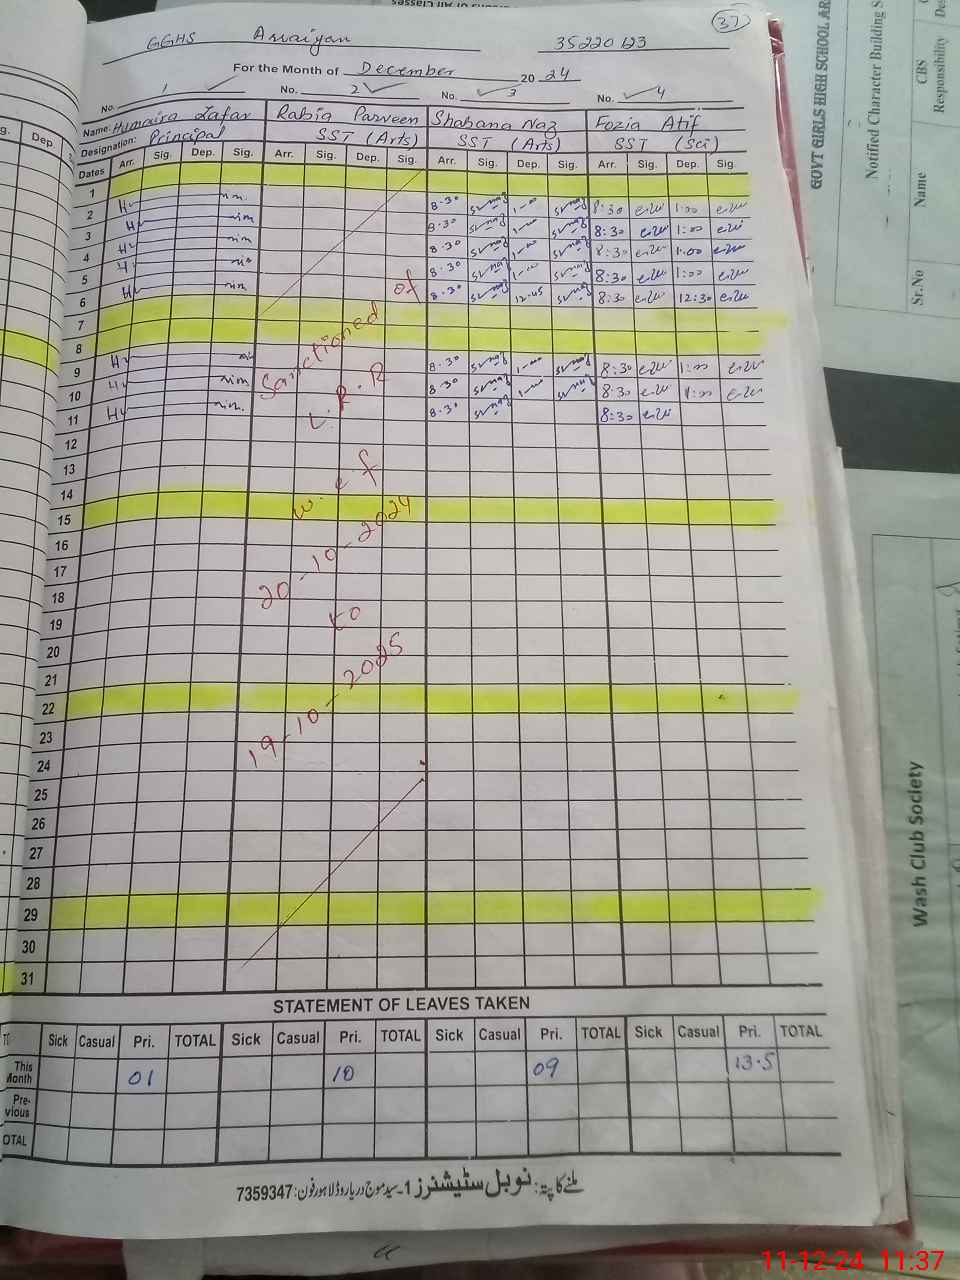 37
GGHS Awaiyan 35220123
For the Month of December 2024
No. 1 No. 2 No. 3 No. 4
Name: Humaira Zafar Rabia Parveen Shabana Naz Fozia Atif
Designation: Principal SST (Arts) SST (Arts) SST (Sci)
Dates Arr. Sig. Dep. Sig. Arr. Sig. Dep. Sig. Arr. Sig. Dep. Sig. Arr. Sig. Dep. Sig.
1
2 8-30 1-00 8:30 1:00
3 8-30 8:30 1:00
4 8-30 1-00 8:30 1:00
5 8-30 1-00 8:30 1:00
6 8-30 12-45 8:30 12:30
7
8
9 8-30 1-00 8:30 1:00
10 8-30 1-00 8:30 1:00
11 8-30 8:30
12
13
14
15
16
17
18
19
20
21
22
23
24
25
26
27
28
29
30
31
Sanctioned of
L.P.R
w.e.f
20-10-2024
to
19-10-2025
STATEMENT OF LEAVES TAKEN
Sick Casual Pri. TOTAL Sick Casual Pri. TOTAL Sick Casual Pri. TOTAL Sick Casual Pri. TOTAL
This Month 01 10 09 13.5
Pre-vious
OTAL
ملنے کا پتہ: نوبل سٹیشنرز 1-سید موج دریا روڈ لاہور فون: 7359347
g. Dep.
GOVT GIRLS HIGH SCHOOL AR
Notified Character Building S
Sr.No Name CBS Responsibility Des
Wash Club Society
11-12-24 11:37